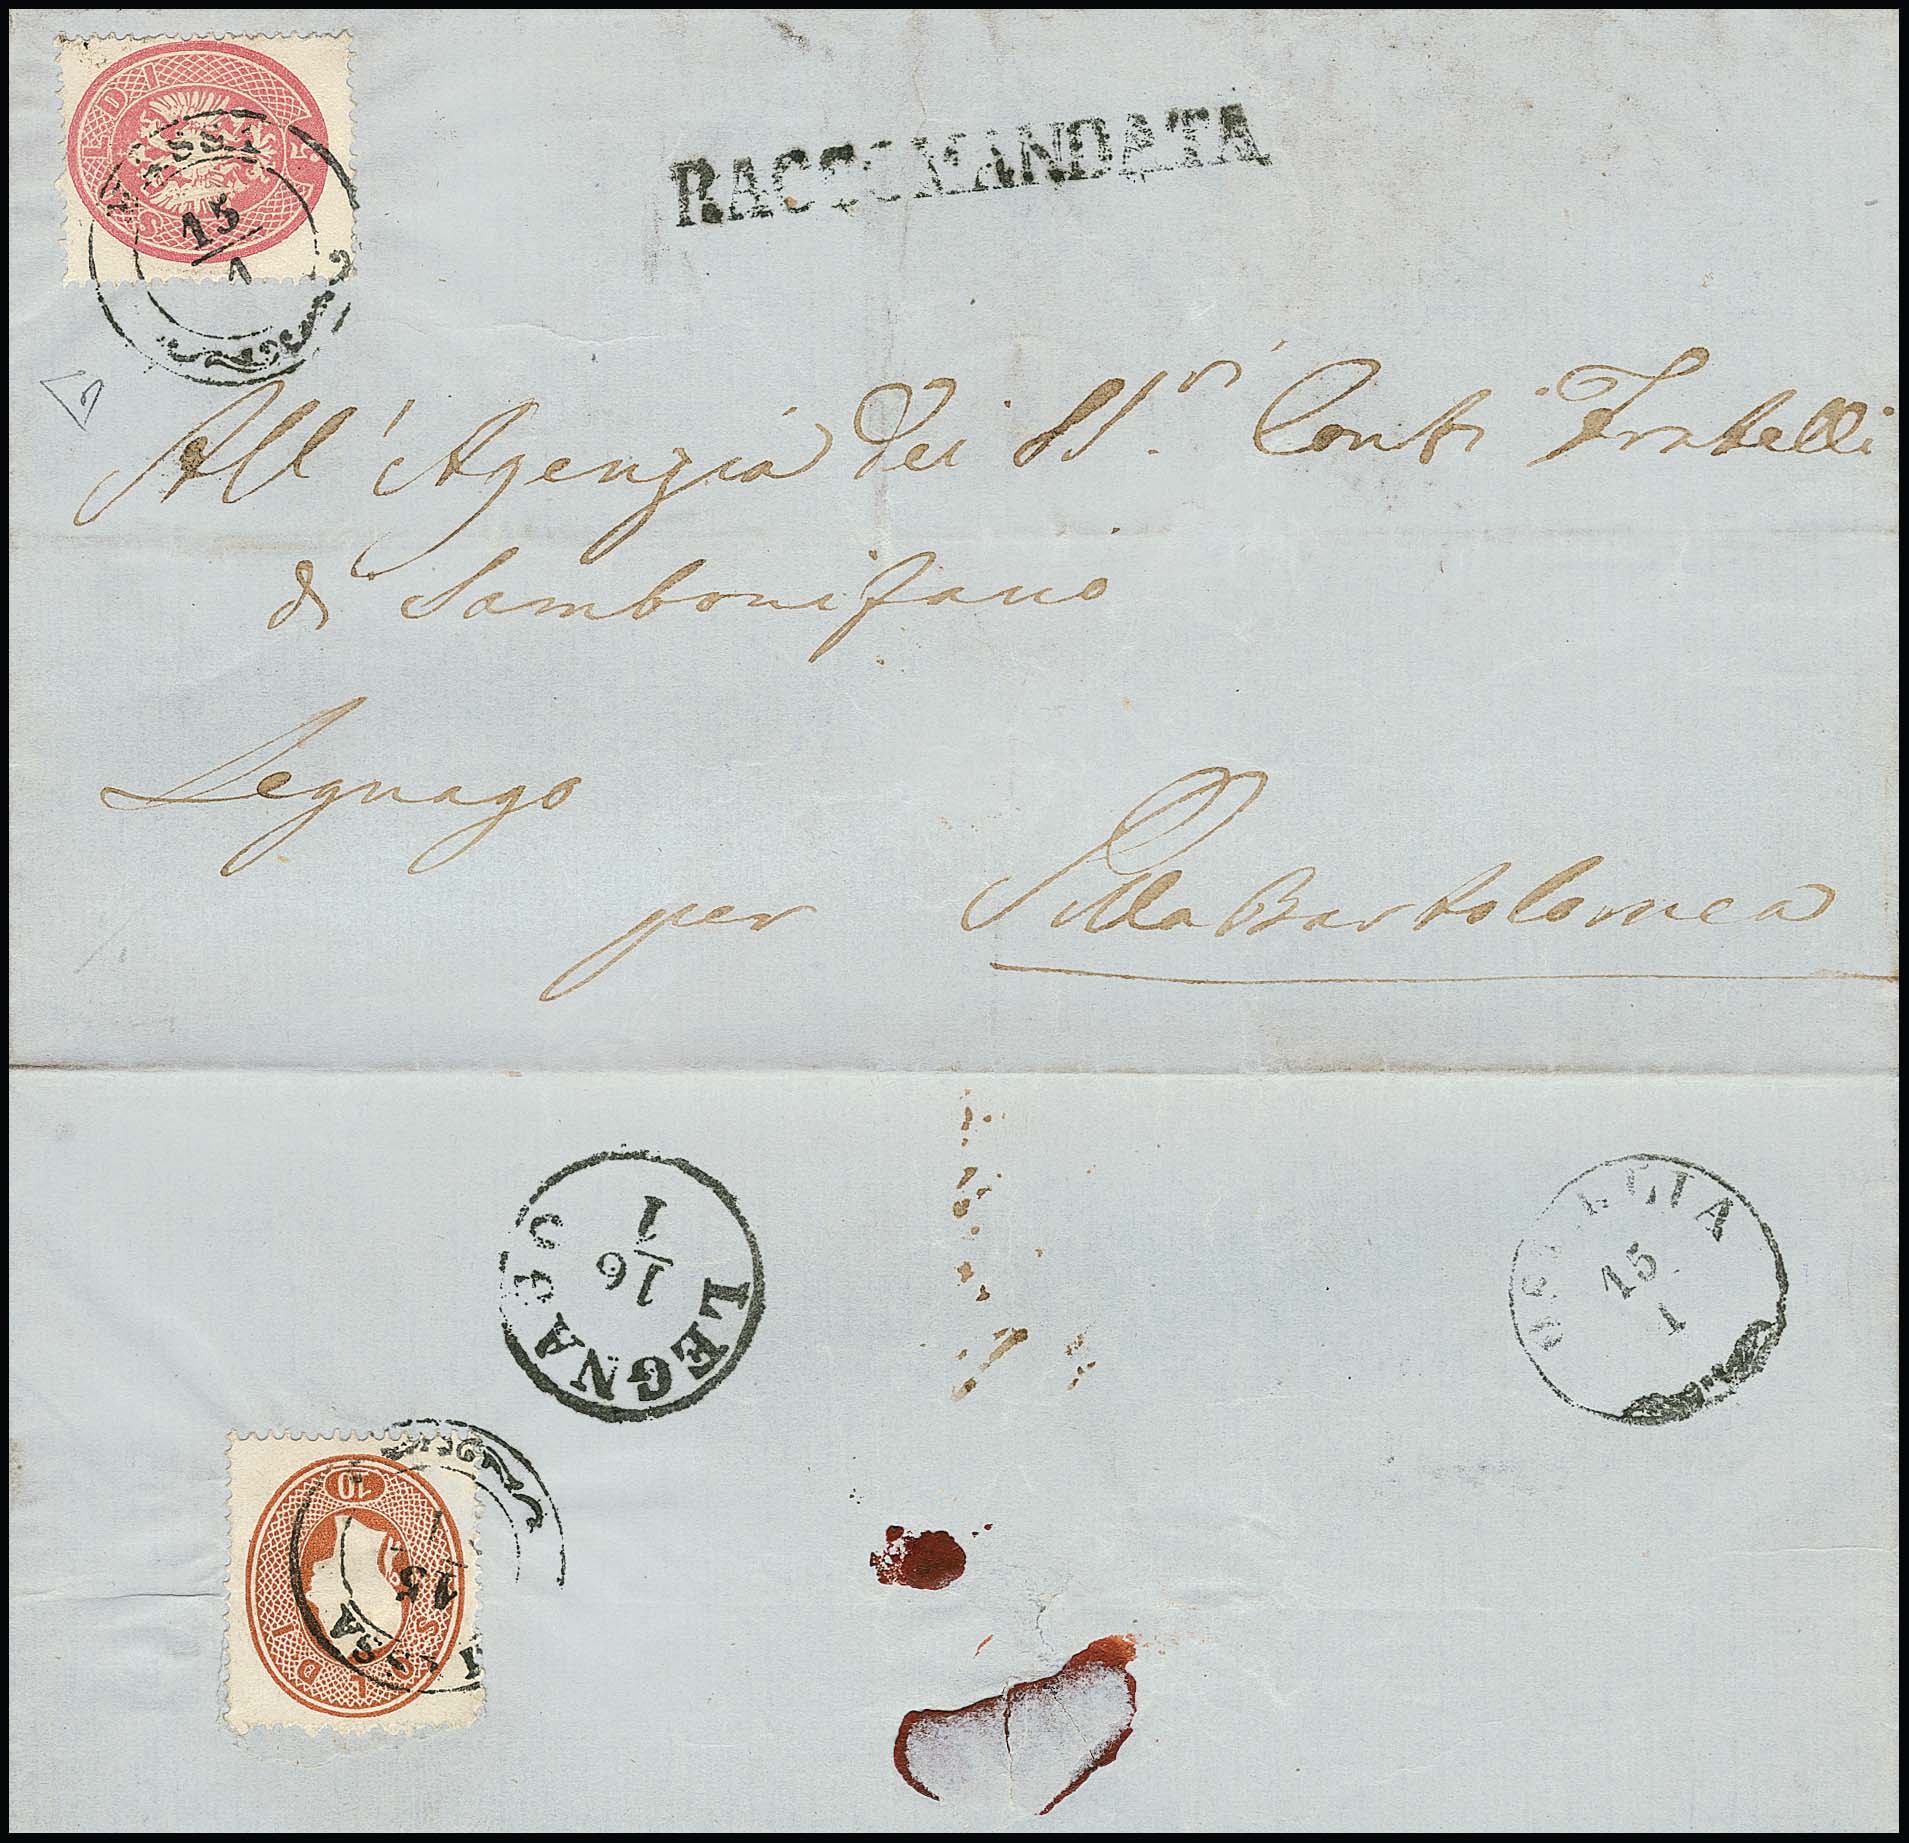 SOLDI 5
MASSA
15
1
RACCOMANDATA
All' Agenzia dei SS.ri Conti Fratelli
di Sambonifacio
Legnago
per Villa Bartolomea
LEGNAGO
16
1
15
1
10 SOLDI
MASSA
15
1